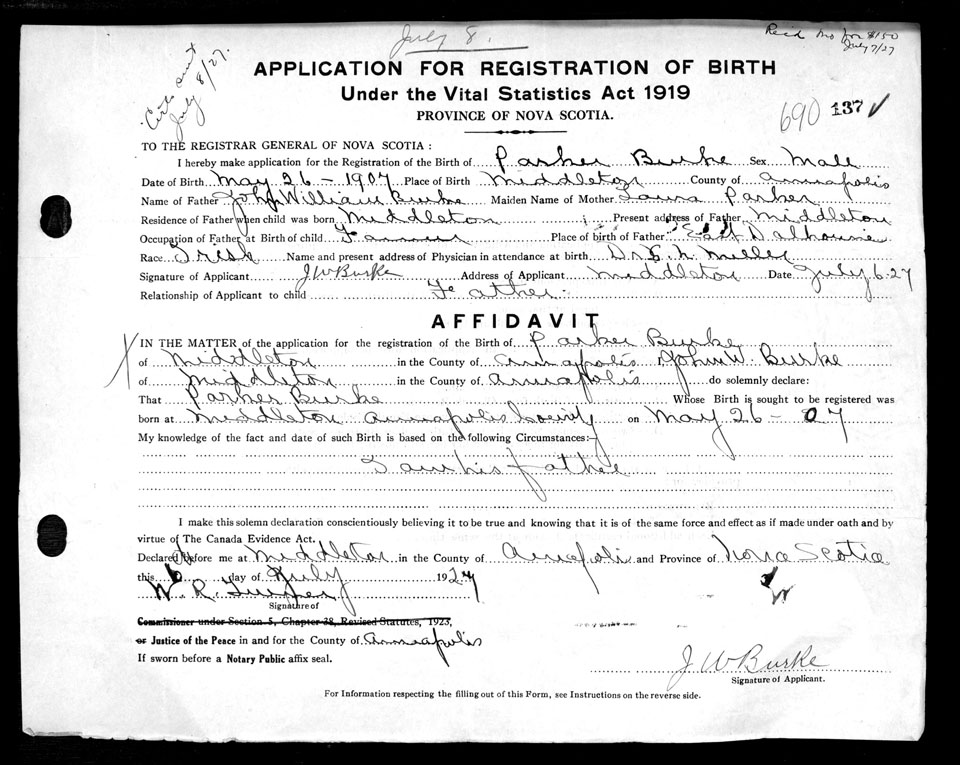 July 8.
Recd Mo for $1.50
July 7/27
Certe sent
July 8/27.
APPLICATION FOR REGISTRATION OF BIRTH
Under the Vital Statistics Act 1919
PROVINCE OF NOVA SCOTIA.
690 137 ✓
TO THE REGISTRAR GENERAL OF NOVA SCOTIA:
I hereby make application for the Registration of the Birth of Parker Burke Sex Male
Date of Birth May 26 - 1907 Place of Birth Middleton County of Annapolis
Name of Father John William Burke Maiden Name of Mother Laura Parker
Residence of Father when child was born Middleton Present address of Father Middleton
Occupation of Father at Birth of child Farmer Place of birth of Father East Dalhousie
Race Irish Name and present address of Physician in attendance at birth Dr. Miller
Signature of Applicant J W Burke Address of Applicant Middleton Date July 6-27
Relationship of Applicant to child Father.
AFFIDAVIT
IN THE MATTER of the application for the registration of the Birth of Parker Burke
of Middleton in the County of Annapolis, John W. Burke
of Middleton in the County of Annapolis do solemnly declare:
That Parker Burke Whose Birth is sought to be registered was
born at Middleton Annapolis County on May 26 - 07
My knowledge of the fact and date of such Birth is based on the following Circumstances:
I am his father
I make this solemn declaration conscientiously believing it to be true and knowing that it is of the same force and effect as if made under oath and by
virtue of The Canada Evidence Act.
Declared before me at Middleton in the County of Annapolis and Province of Nova Scotia
this 6th day of July 1927
W. R.
Signature of
Commissioner under Section 5, Chapter 38, Revised Statutes, 1923,
or Justice of the Peace in and for the County of Annapolis
If sworn before a Notary Public affix seal.
J W Burke
Signature of Applicant.
For Information respecting the filling out of this Form, see Instructions on the reverse side.